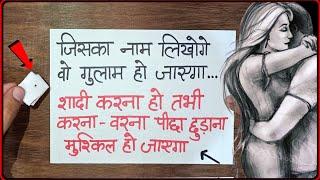 जिसका नाम लिखोगे
वो गुलाम हो जाएगा...
शादी करना हो तभी
करना - वरना पीछा छुड़ाना
मुश्किल हो जाएगा